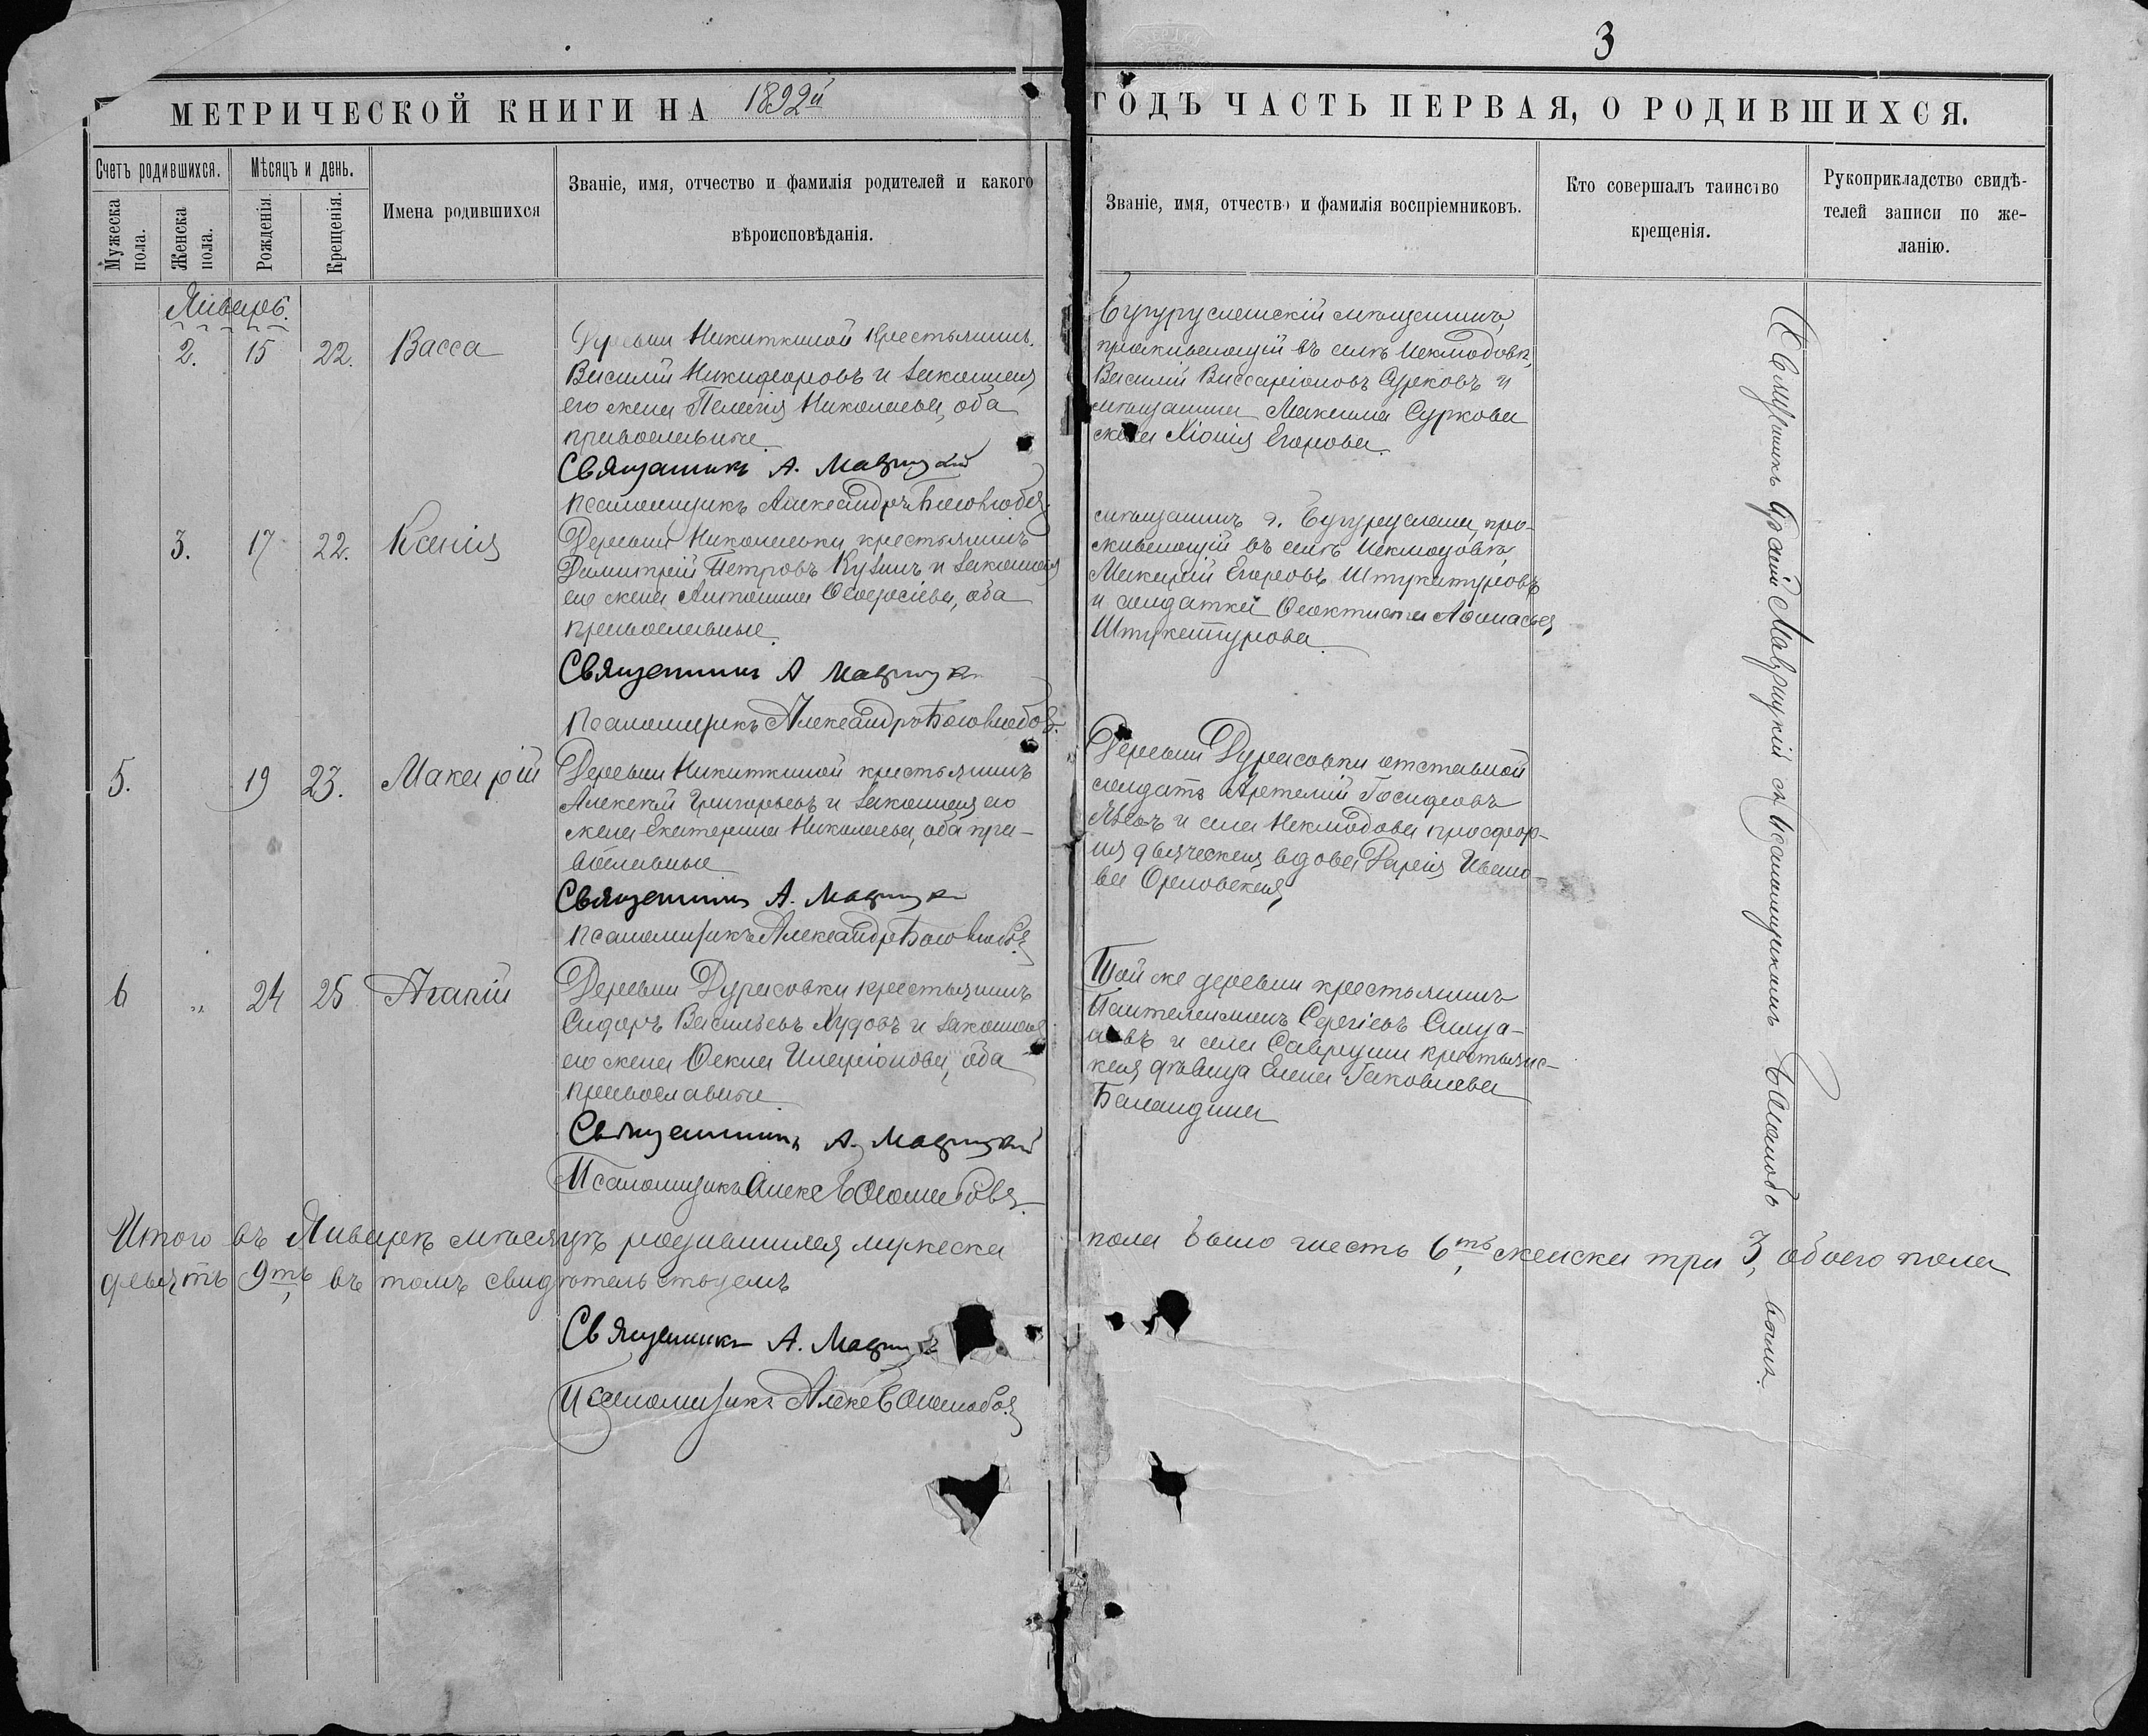 3
МЕТРИЧЕСКОЙ КНИГИ НА 1892й ГОДЪ ЧАСТЬ ПЕРВАЯ, О РОДИВШИХСЯ.
Счетъ родившихся.
Мужеска пола.
Женска пола.
Мѣсяцъ и день.
Рожденія
Крещенія.
Имена родившихся
Званіе, имя, отчество и фамилія родителей и какого
вѣроисповѣданія.
Званіе, имя, отчество и фамилія воспріемниковъ.
Кто совершалъ таинство
крещенія.
Рукоприкладство свидѣ-
телей записи по же-
ланію.
Январь.
2. 15 22. Васса
Деревни Никиткиной крестьянинъ
Василій Никифоровъ и законная
его жена Пелагія Николаева, оба
православные
Священникъ А. Маврицкій
Псаломщикъ Александръ Боголюбовъ
Бугурусланскій мѣщанинъ,
проживающій въ селѣ Неклюдовѣ,
Василій Виссаріоновъ Сурковъ и
мѣщанина Максима Суркова
жена Хіонія Егорова.
3. 17 22. Ксенія
Деревни Николаевки крестьянинъ
Димитрій Петровъ Кузинъ и законная
его жена Антонина
оба
православные.
Священникъ А Маврицкій
Псаломщикъ Александръ Боголюбовъ.
мѣщанинъ г. Бугуруслана, про-
живающій въ селѣ Неклюдовѣ
Макарій Егоровъ Штукатуровъ
и солдатка Ѳеоктиста Аѳонасьева
Штукатурова.
5. 19 23. Макарій
Деревни Никиткиной крестьянинъ
Алексѣй Григорьевъ и законная его
жена Екатерина Николаева, оба пра-
вославные
Священникъ А. Маврицкій
Псаломщикъ Александръ Боголюбовъ
Деревни Дурасовки отставной
солдатъ Артемій Іосифовъ
и села Неклюдова просфор-
ня дьяческая вдова Дарія Ивано-
ва Орловская
6 „ 24 25 Агапій
Деревни Дурасовки крестьянинъ
Сидоръ Васильевъ Худовъ и законная
его жена Ѳекла Иларіонова, оба
православные
Священникъ А. Маврицкій
Псаломщикъ Алекс Боголюбовъ
Той же деревни крестьянинъ
Пантелеимонъ Сергіевъ
и села Савруши крестьянс-
кая дѣвица Елена Іаковлева
Баландина
Священникъ Маврицкій съ Псаломщикомъ
Итого въ Январѣ мѣсяцѣ родившихся мужеска пола было шесть 6ть, женска три 3, обоего пола
девять 9ть, въ томъ свидѣтельствуемъ
Священникъ А. Маврицкій
Псаломщикъ Алекс Боголюбовъ